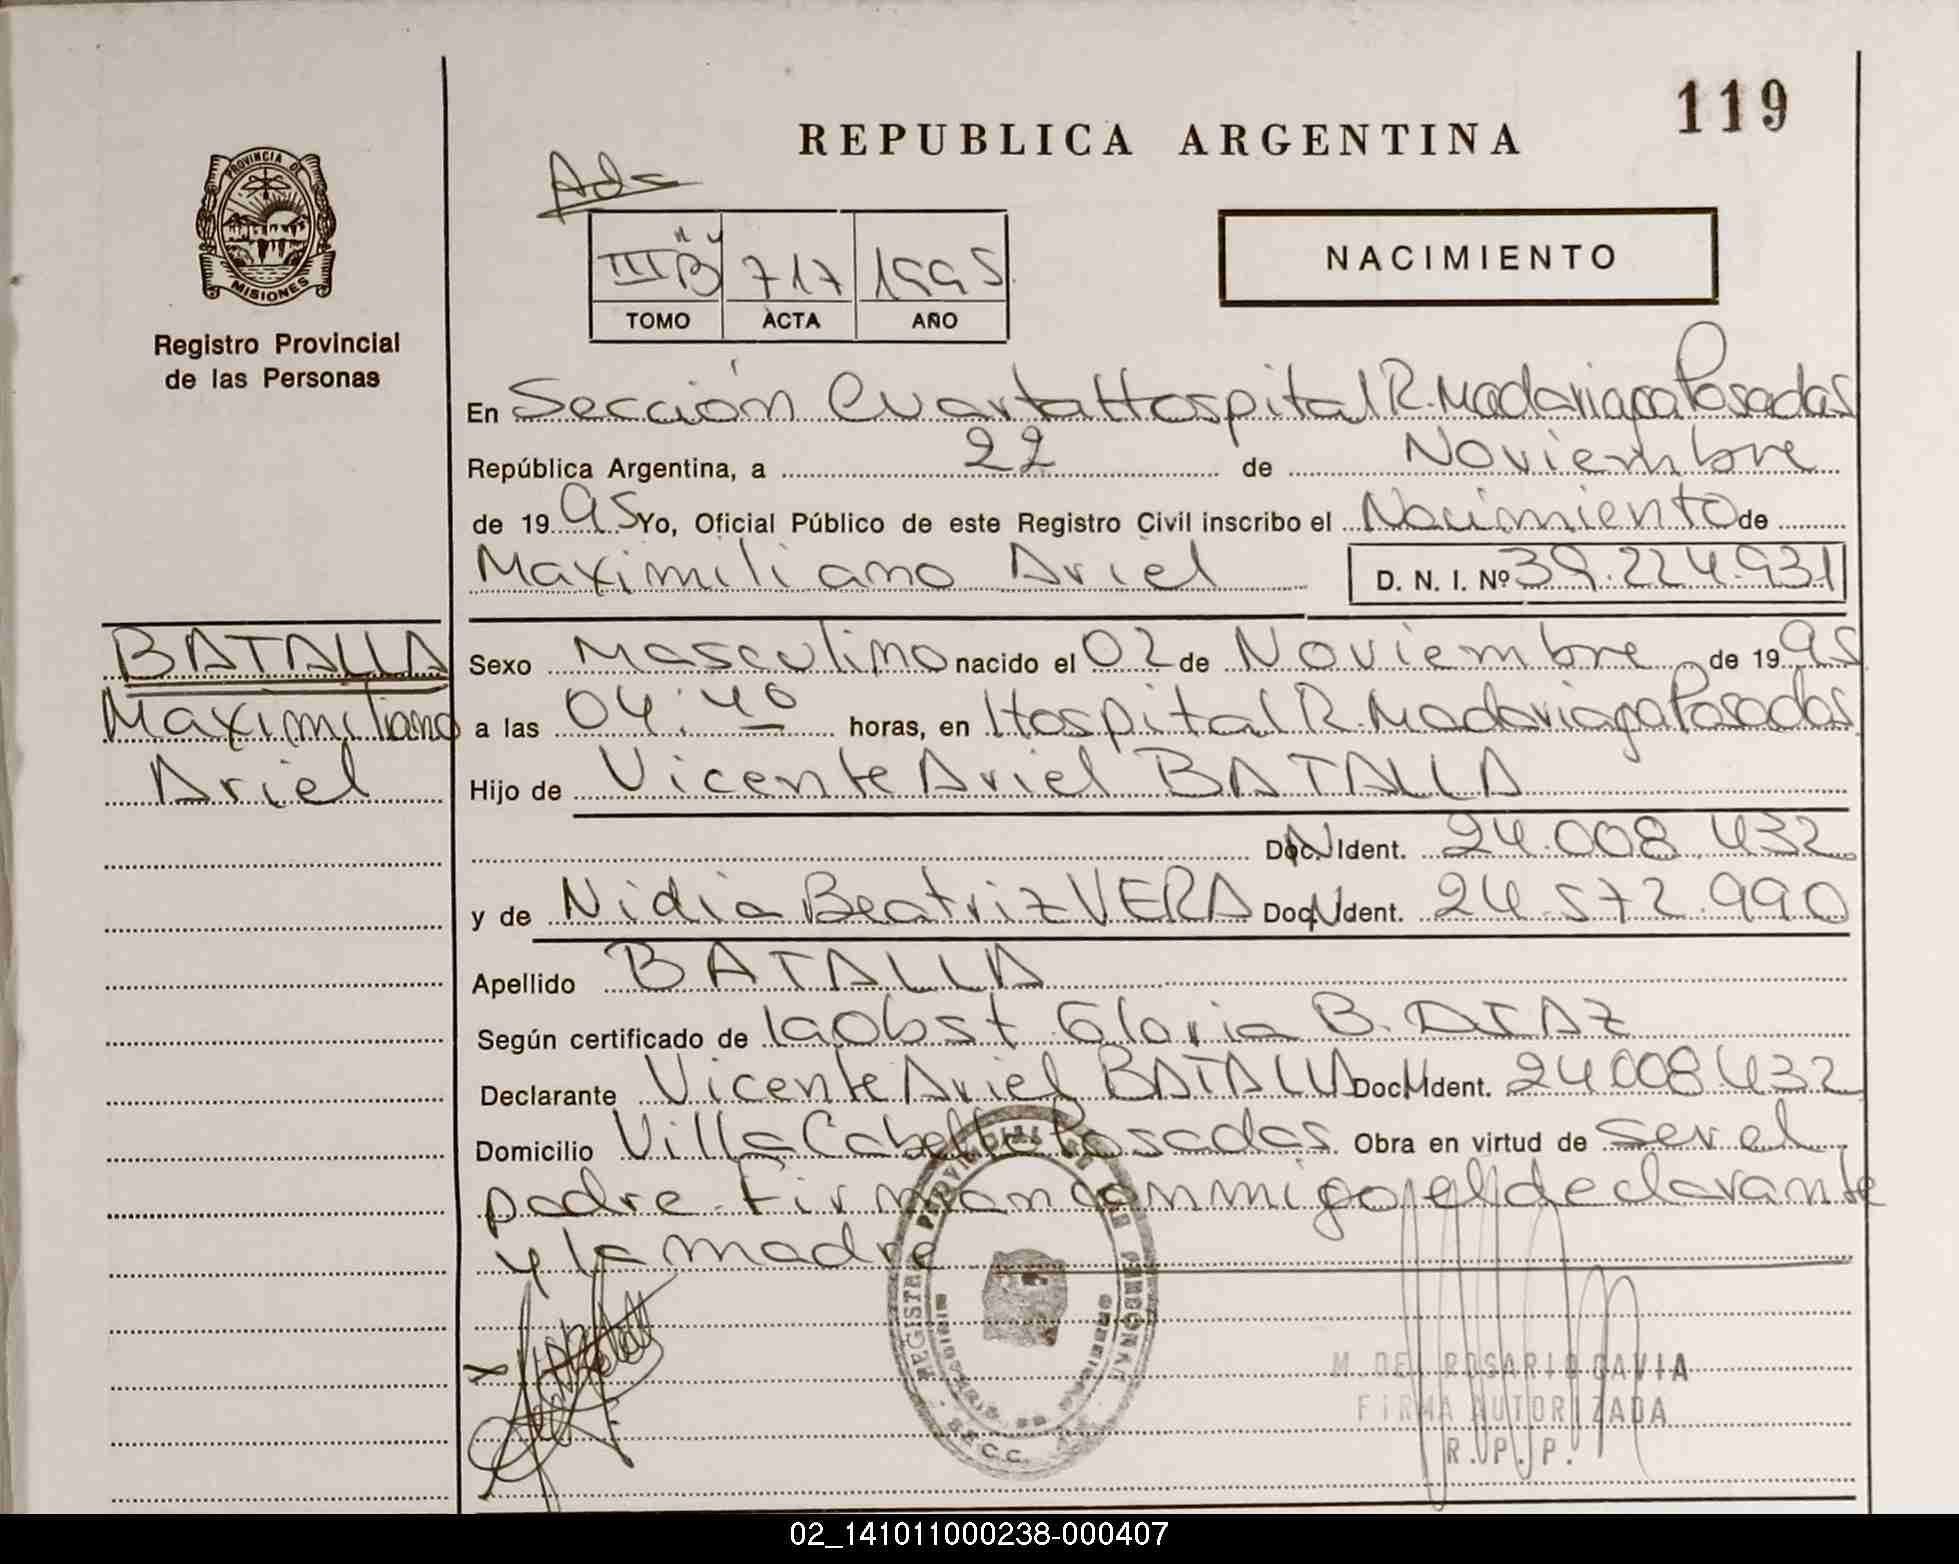 119
REPUBLICA ARGENTINA
Ads
III "B" 717 1995
TOMO ACTA AÑO
NACIMIENTO
PROVINCIA DE
MISIONES
Registro Provincial
de las Personas
En Sección Cuarta Hospital R. Madariaga Posadas
República Argentina, a 22 de Noviembre
de 1995 Yo, Oficial Público de este Registro Civil inscribo el Nacimiento de
Maximiliano Ariel D. N. I. Nº 39.224.931
BATALLA
Maximiliano
Ariel
Sexo Masculino nacido el 02 de Noviembre de 1995
a las 04:40 horas, en Hospital R. Madariaga Posadas
Hijo de Vicente Ariel BATALLA
Doc. Ident. 24.008.432
y de Nidia Beatriz VERA Doc. Ident. 24.572.990
Apellido BATALLA
Según certificado de la Obst Gloria B. DIAZ
Declarante Vicente Ariel BATALLA Doc. Ident. 24.008.432
Domicilio Villa Cabello Posadas. Obra en virtud de ser el
padre. Firman conmigo el declarante
y la madre
M. DEL ROSARIO GAVIA
FIRMA AUTORIZADA
R.P.P.
02_141011000238-000407